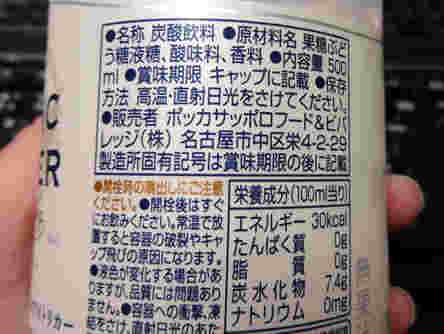 ●名称 炭酸飲料 ●原材料名 果糖ぶど
う糖液糖、酸味料、香料 ●内容量 500
ml ●賞味期限 キャップに記載 ●保存
方法 高温・直射日光をさけてください。
●販売者 ポッカサッポロフード&ビバ
レッジ(株) 名古屋市中区栄4-2-29
製造所固有記号は賞味期限の後に記載
●開栓時の噴出しにご注意
ください。●開栓後はすぐ
にお飲みください。常温で放
置すると容器の破裂やキャ
ップ飛びの原因になります。
●液色が変化する場合があ
りますが、品質には問題あり
ません。●容器への衝撃、凍
結をさけ、直射日光のあた
栄養成分(100ml当り)
エネルギー 30kcal
たんぱく質 0g
脂質 0g
炭水化物 7.4g
ナトリウム 0mg
C
ER